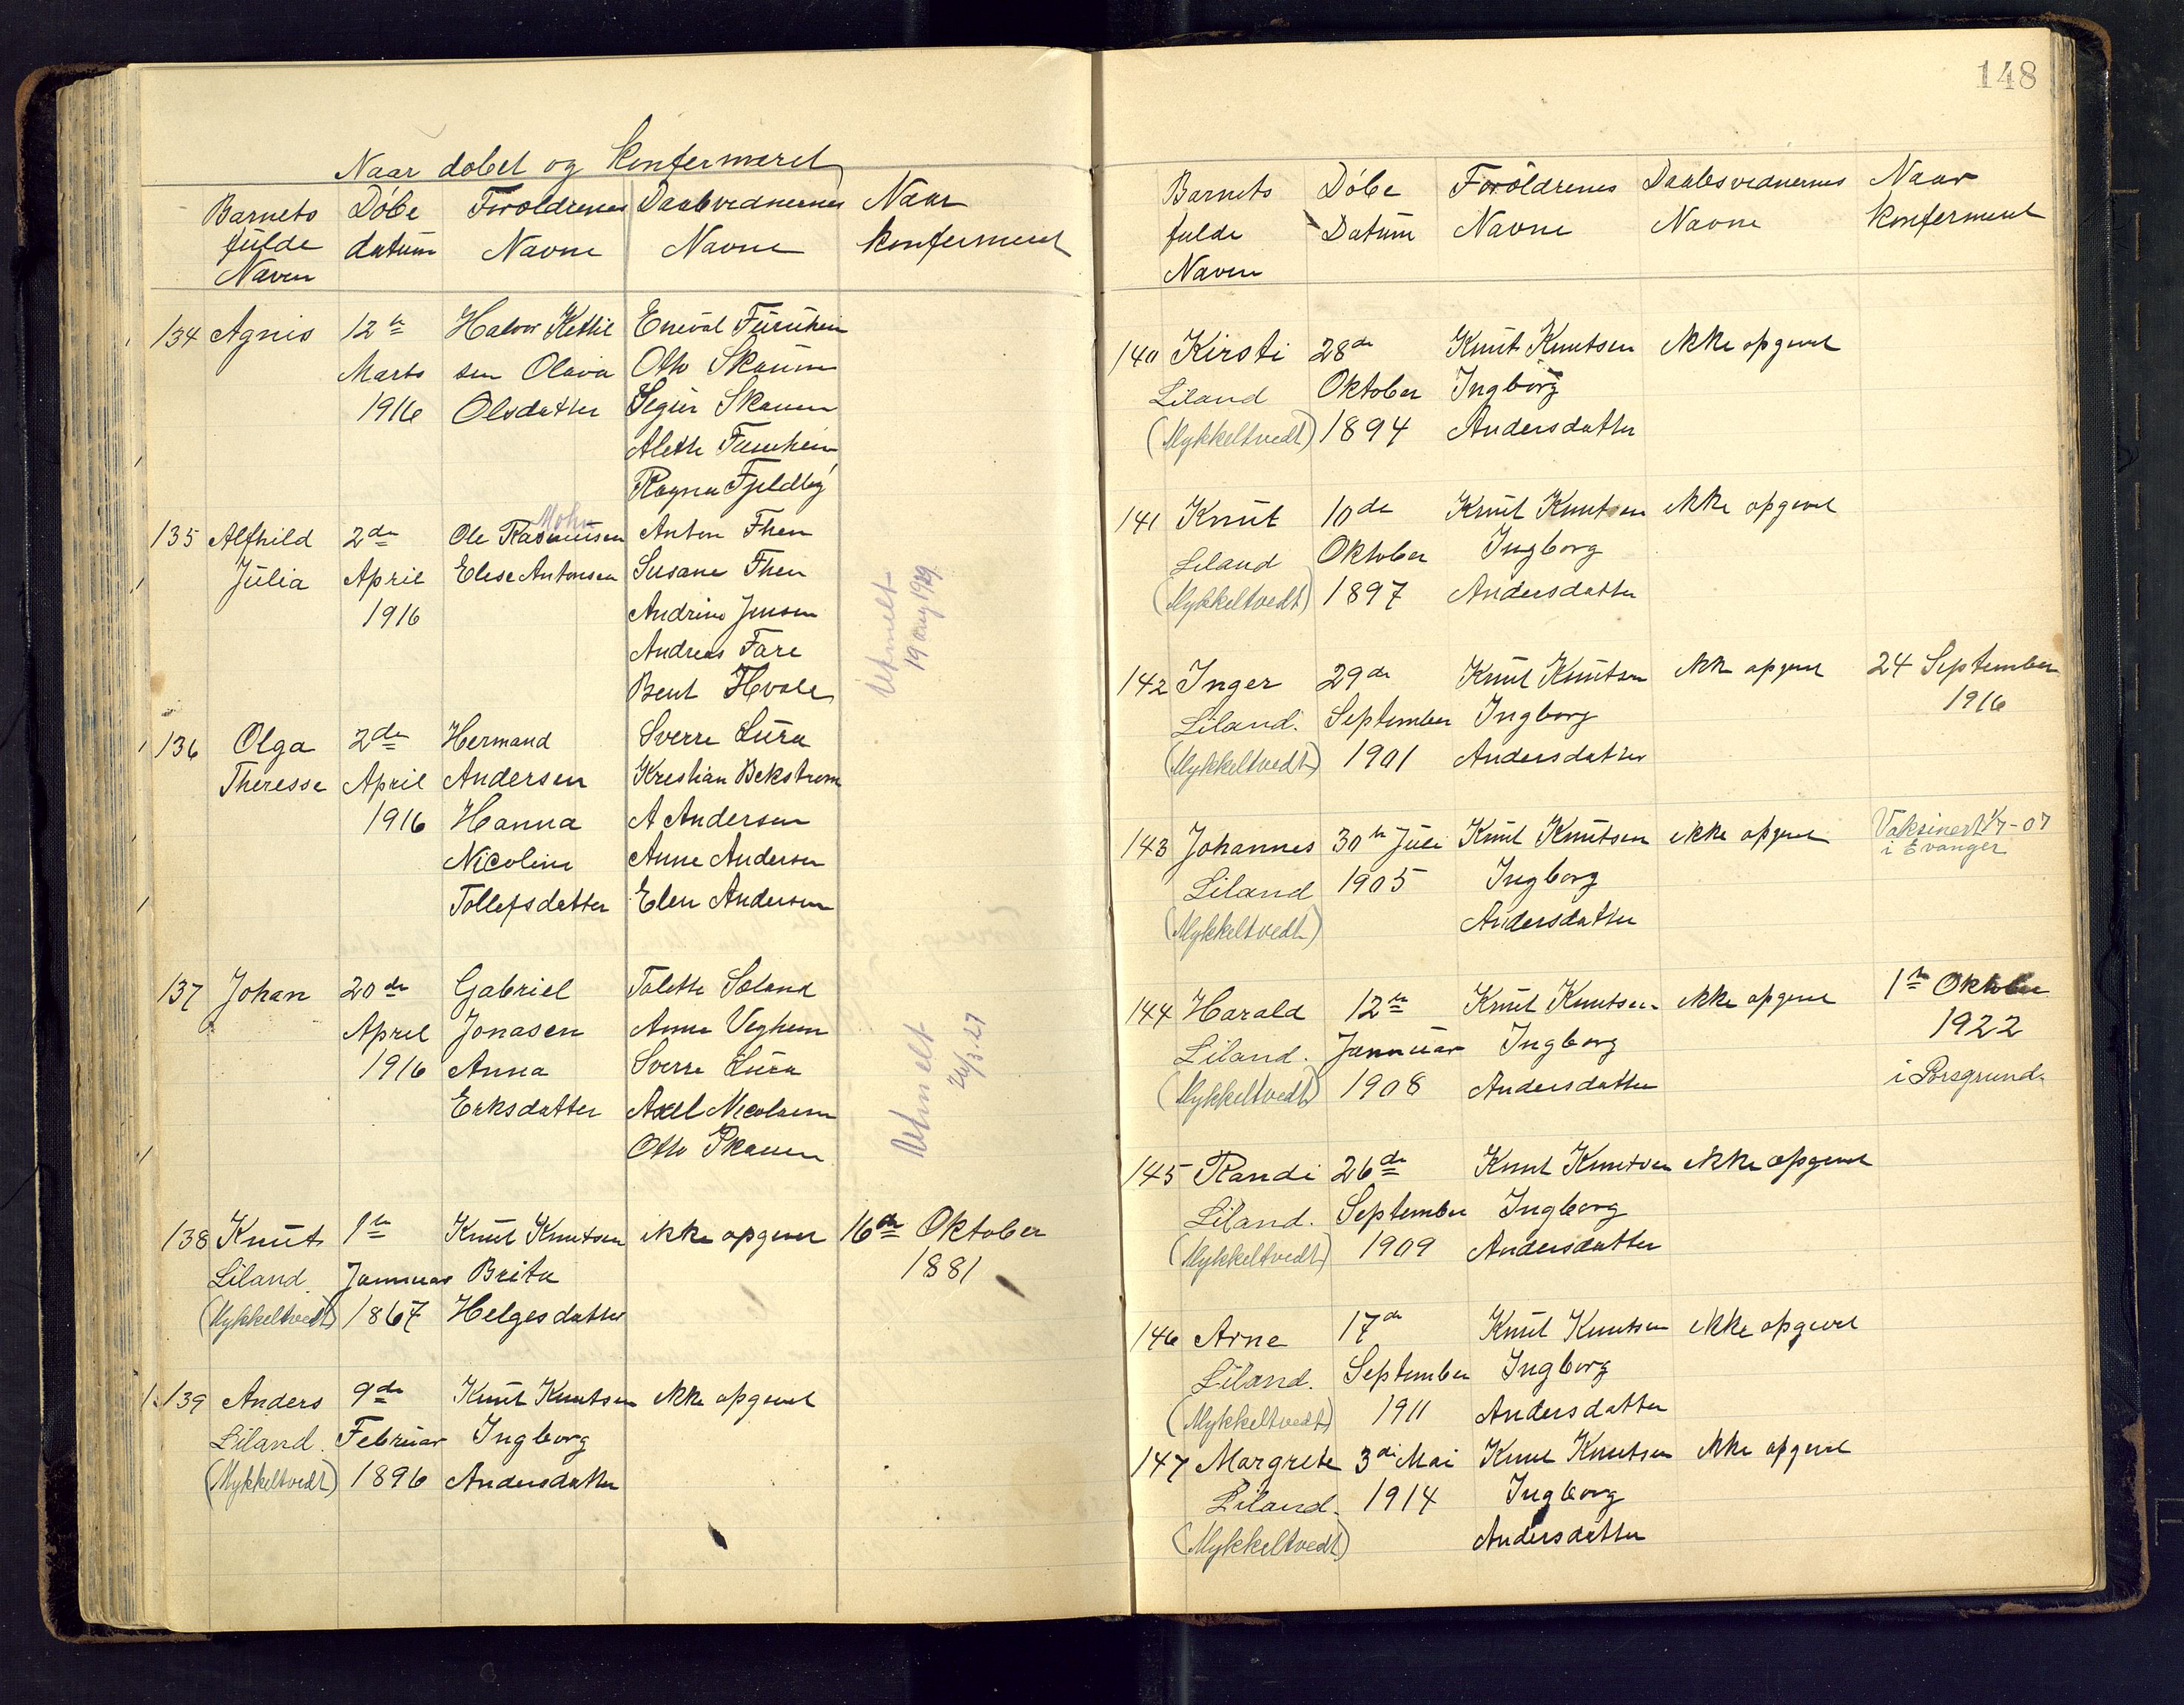 Naar døbet og konfermeret
Barnets Döbe Foröldrenes Daabvednernes Naar
fulde datum Navne Navne konfermeret
Navn
134 Agnis 12te Halvor Kettil Eneval Furuhein
Marts sen Olava Otto Skauen
1916 Olsdatter Segur Skauen
Alette Furuhein
Ragna Fjeldby
Mohn
135 Alfhild 2den Ole Rasmusen Anton Fhen
Julia April Elese Antonsen Susane Fhen
1916 Andrine Jensen
Andreas Fare
Bent Hvale
Utmelt
19 aug 1929
136 Olga 2den Hermand Sverre Lura
Theresse April Andersen Krestian Bekstrøm
1916 Hanna A Andersen
Nicoline Anne Andersen
Tollefsdatter Elen Andersen
137 Johan 20de Gabriel Talette Soland
April Jonasen Anna Veghem
1916 Anna Sverre Lura
Erksdatter Axel Nicolaisen
Otto Skauen
Utmelt
24/3.27
138 Knut 1te Knut Knutsen ikke opgevet 16de Oktober
Liland Januar Brita 1881
(Mykkeltvedt) 1867 Helgesdatter
139 Anders 9de Knut Knutsen ikke opgevet
Liland. Februar Ingborg
(Mykkeltvedt) 1896 Andersdatter
148
Barnets Döbe Foröldrenes Daabsvednernes Naar
fulde Datum Navne Navne konfermeret
Navn
140 Kirsti 28de Knut Knutsen ikke opgevet
Liland Oktober Ingborg
(Mykkeltvedt) 1894 Andersdatter
141 Knut 10de Knut Knutsen ikke opgevet
Liland Oktober Ingborg
(Mykkeltvedt) 1897 Andersdatter
142 Inger 29de Knut Knutsen ikke opgevet 24 September
Liland. September Ingborg 1916
(Mykkeltvedt) 1901 Andersdatter
143 Johannes 30te Juli Knut Knutsen ikke opgevet Vaksinert 1/7-07
Liland 1905 Ingborg i Evanger
(Mykkeltvedt) Andersdatter
144 Harald 12te Knut Knutsen ikke opgevet 1te Oktober
Liland. Januar Ingborg 1922
(Mykkeltvedt) 1908 Andersdatter i Porsgrund
145 Randi 26de Knut Knutsen ikke opgevet
Liland. September Ingborg
(Mykkeltvedt) 1909 Andersdatter
146 Arne 17de Knut Knutsen ikke opgevet
Liland. September Ingborg
(Mykkeltvedt) 1911 Andersdatter
147 Margrete 3de Mai Knut Knutsen ikke opgevet
Liland. 1914 Ingborg
(Mykkeltvedt) Andersdatter